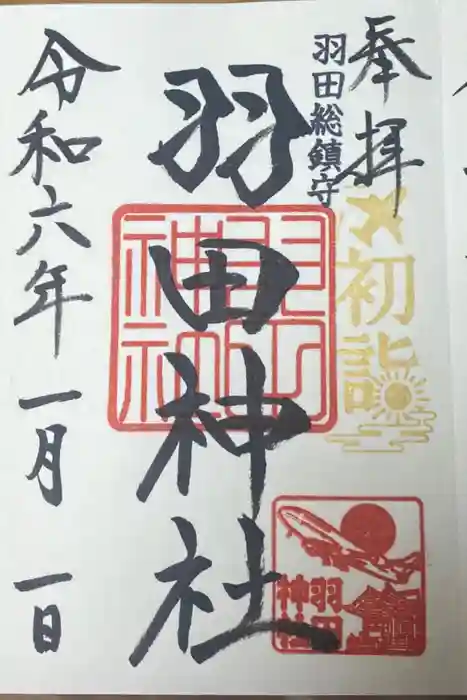 奉拝
羽田総鎮守
初詣
羽田神社
羽田神社
羽田神社
令和六年一月一日